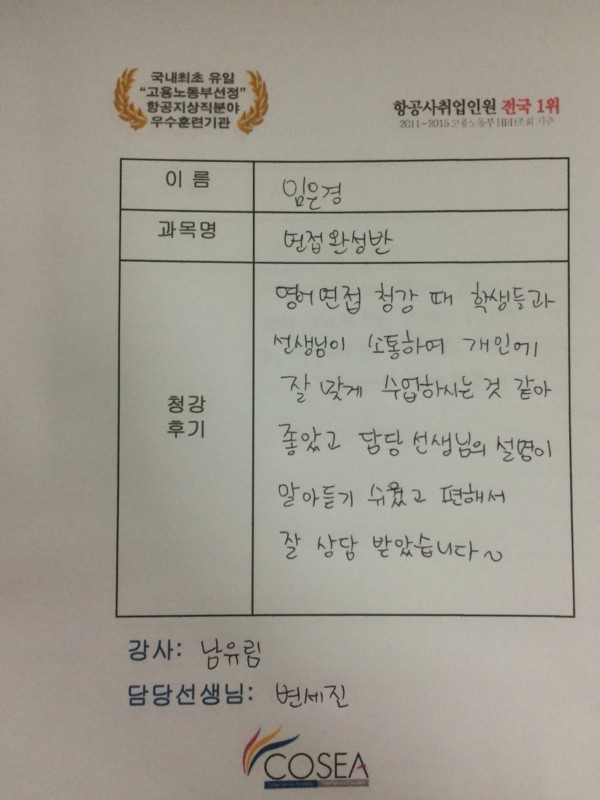 국내최초 유일
"고용노동부선정"
항공지상직분야
우수훈련기관
항공사취업인원 전국 1위
2011-2015 고용노동부 HRD조회 기준
이 름
임은경
과목명
면접완성반
청강
후기
영어면접 청강 때 학생들과
선생님이 소통하며 개인에
잘 맞게 수업하시는 것 같아
좋았고 담당 선생님의 설명이
알아듣기 쉬웠고 편해서
잘 상담 받았습니다~
강사: 남유림
담당선생님: 변세진
COSEA